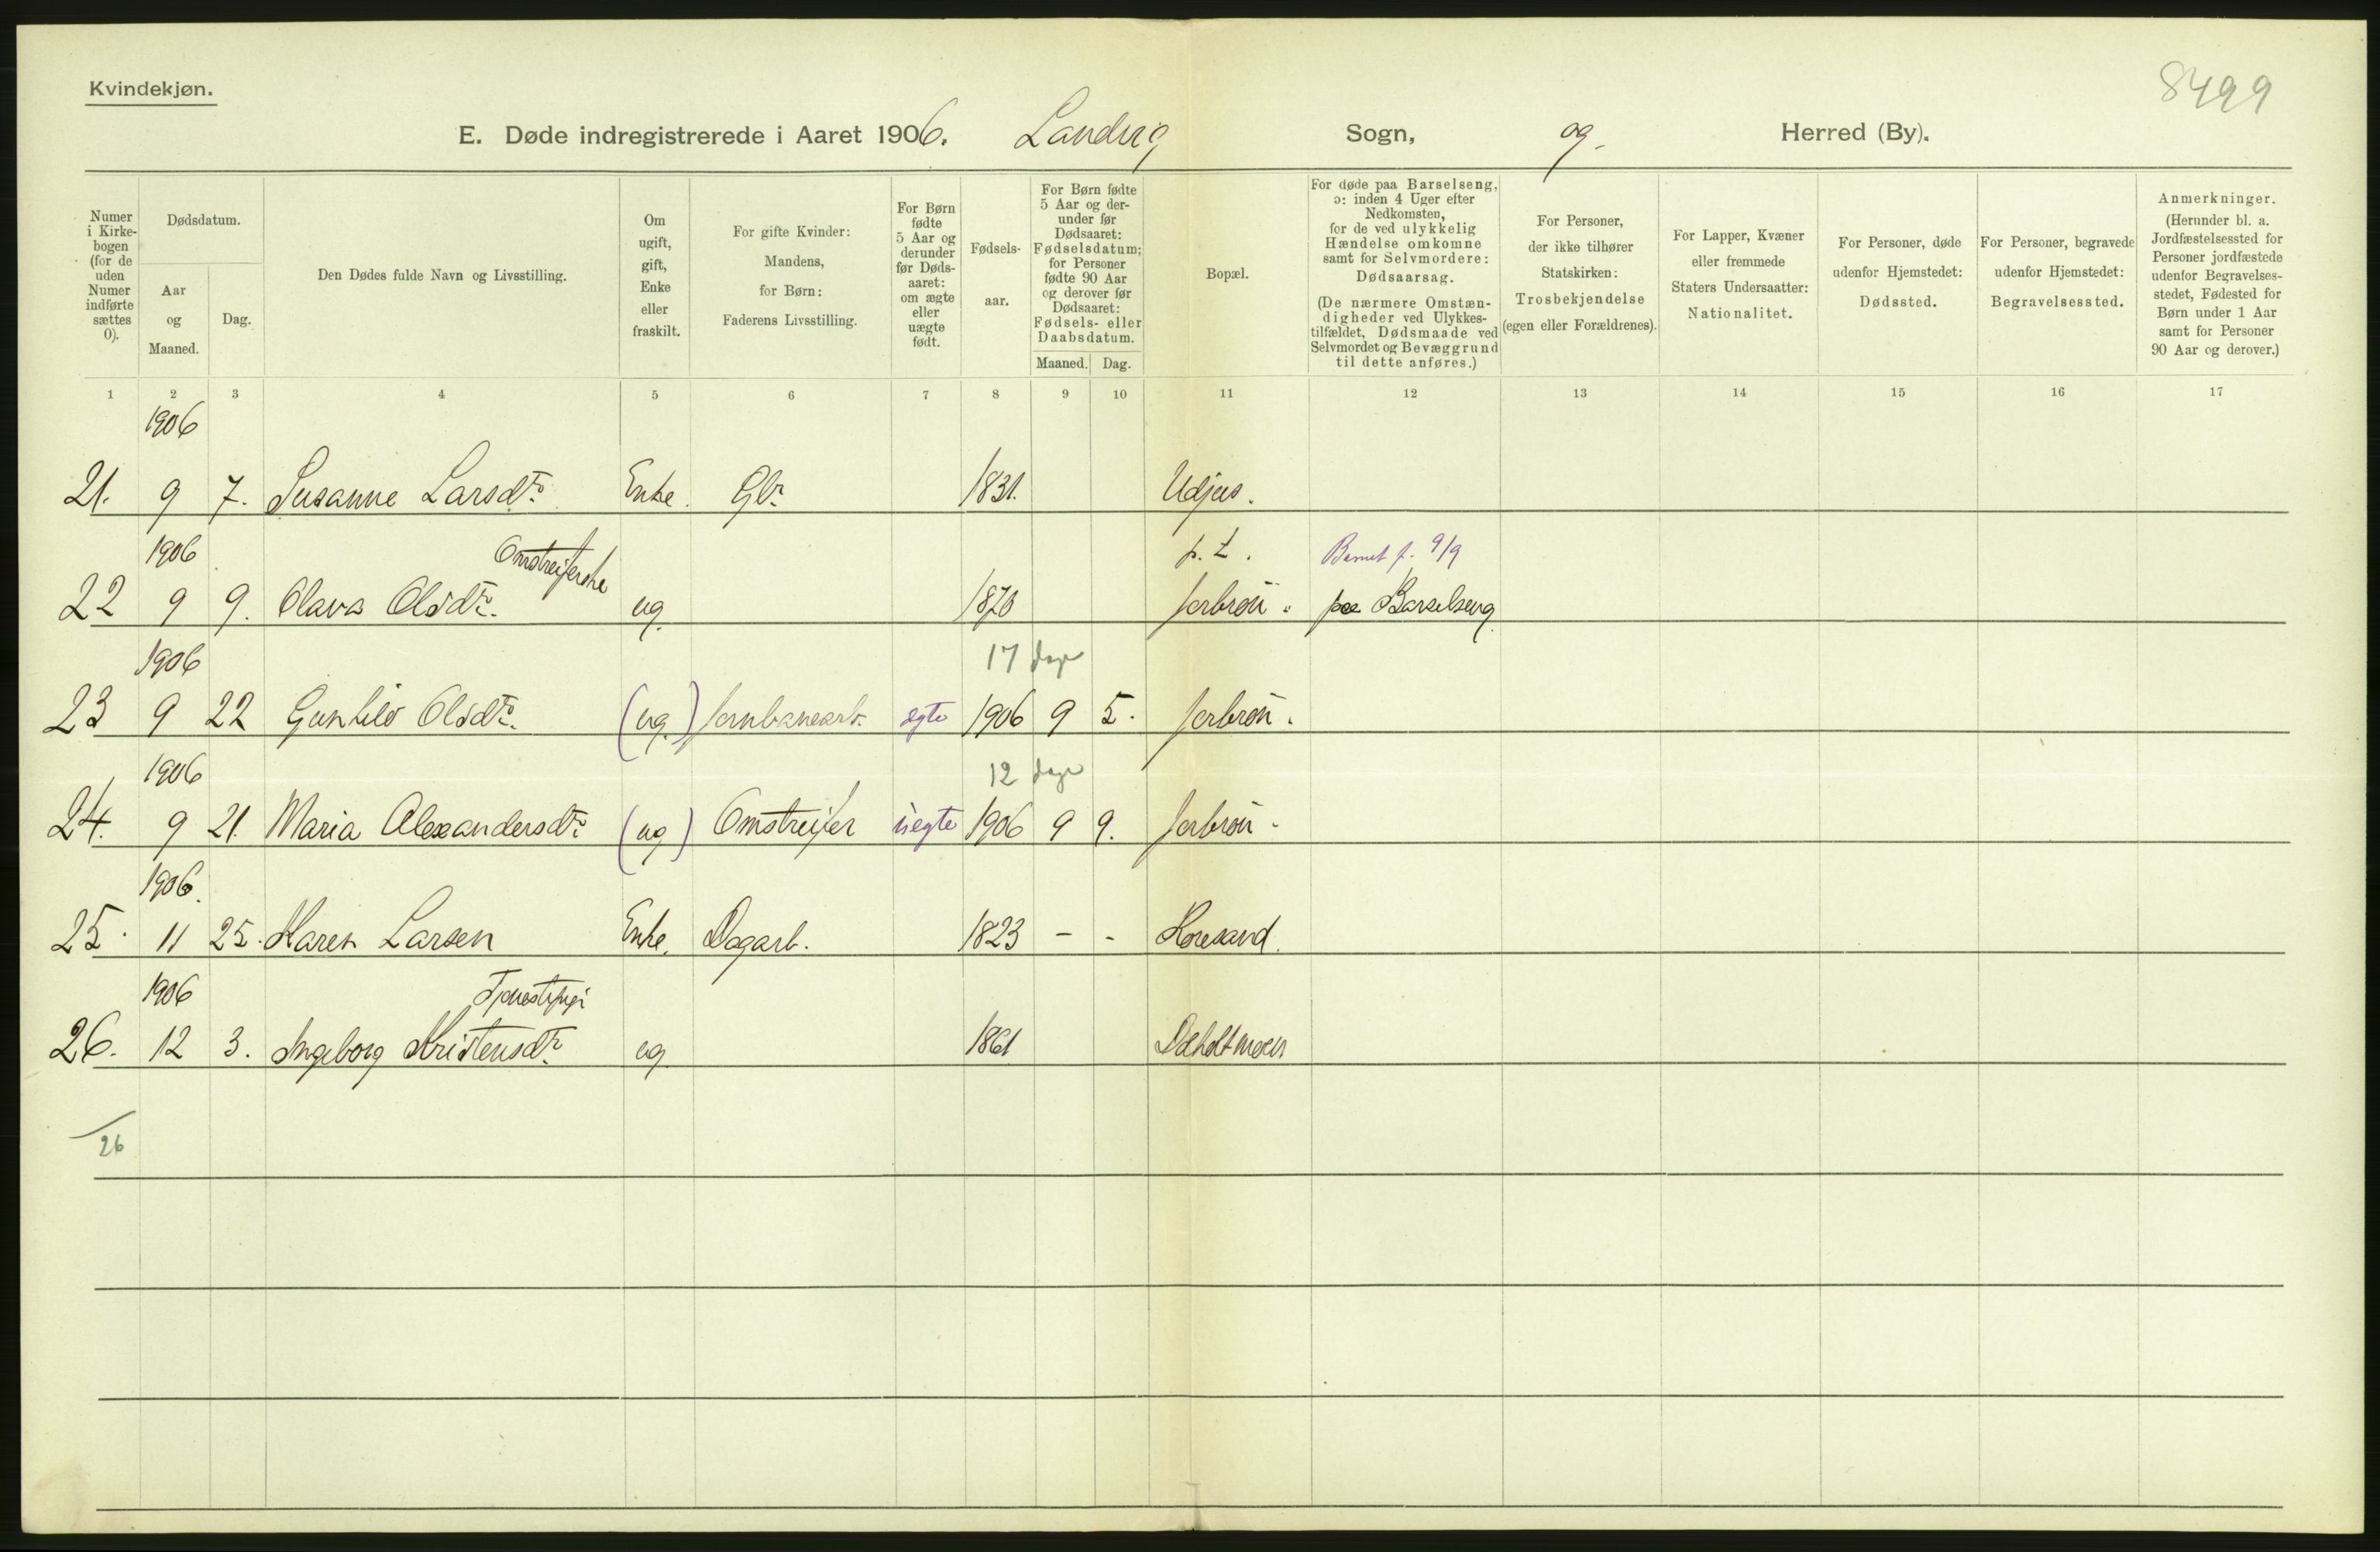 Kvindekjøn.
8499
E. Døde indregistrerede i Aaret 1906. Landvig Sogn, og Herred (By).
Numer i Kirkebogen (for de uden Numer indførte sættes 0).
Dødsdatum.
Aar og Maaned.
Dag.
Den Dødes fulde Navn og Livsstilling.
Om ugift, gift, Enke eller fraskilt.
For gifte Kvinder: Mandens, for Børn: Faderens Livsstilling.
For Børn fødte 5 Aar og derunder før Dødsaaret: om ægte eller uægte født.
Fødselsaar.
For Børn fødte 5 Aar og derunder før Dødsaaret: Fødselsdatum; for Personer fødte 90 Aar og derover før Dødsaaret: Fødsels- eller Daabsdatum.
Maaned. Dag.
Bopæl.
For døde paa Barselseng, ɔ: inden 4 Uger efter Nedkomsten, for de ved ulykkelig Hændelse omkomne samt for Selvmordere: Dødsaarsag.
(De nærmere Omstændigheder ved Ulykkestilfældet, Dødsmaade ved Selvmordet og Bevæggrund til dette anføres.)
For Personer, der ikke tilhører Statskirken: Trosbekjendelse (egen eller Forældrenes).
For Lapper, Kvæner eller fremmede Staters Undersaatter: Nationalitet.
For Personer, døde udenfor Hjemstedet: Dødssted.
For Personer, begravede udenfor Hjemstedet: Begravelsessted.
Anmerkninger. (Herunder bl. a. Jordfæstelsessted for Personer jordfæstede udenfor Begravelsesstedet, Fødested for Børn under 1 Aar samt for Personer 90 Aar og derover.)
1 2 3 4 5 6 7 8 9 10 11 12 13 14 15 16 17
1906
21. 9 7. Susanne Larsdtr. Enke. Gbr. 1831. Udjus.
1906 Omstreiferske p. t. Barnet f. 9/9
22 9 9. Olava Olsdtr. ug. 1870 Jerbröu. paa Barselseng
1906 17 dage
23 9 22 Gunhild Olsdtr. (ug.) Jernbanearb. egte 1906 9 5. Jerbröu.
1906 12 dage
24. 9 21. Maria Alexandersdtr. (ug) Omstreifer uegte 1906 9 9. Jerbröu.
1906.
25. 11 25. Karen Larsen Enke. Dagarb. 1823 - - Roresand.
1906
26. 12 3. Ingeborg Kristensdtr. ug. 1861
26